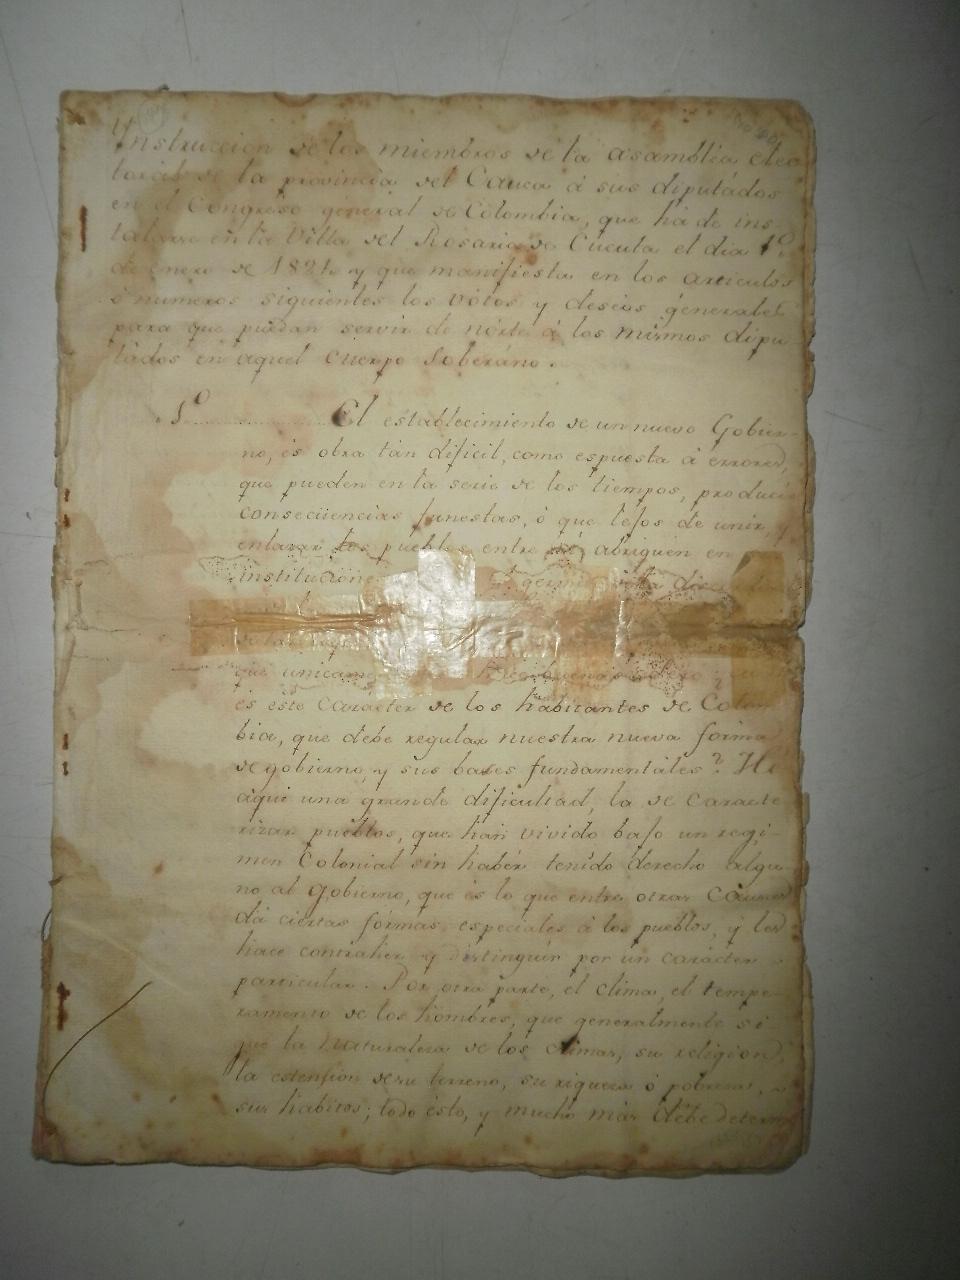 Ynstruccion de los miembros de la asamblea elec
torál de la provincia del Cauca á sus diputádos
en el Congreso géneral de Colombia, que há de ins
talarse en la Villa del Rosario de Cúcuta el dia 1.º
de enero de 1821. y que manifiesta en los articulos
ó numeros siguientes los vótos y deseos génerales
para que puedan servir de nórte á los mismos dipu
tádos en aquel cuerpo Soberáno.
1.º El establecimiento de un nuevo Gobier-
no, és obra tán dificil, como espuesta á errores,
que pueden en la serie de los tiempos, producir
consecüencias funestas, ó que lejos de unir, y
enlazar los pueblos entre sí abriguen en
institucione
de la
que unicame
és este carácter de los habitantes de Colom
bia, que debe regular nuestra nueva fórma
de gobierno, y sus bases fundamentáles? He
aqui una grande dificultad, la de caracte
rizar pueblos, que hán vivido bajo un regi-
men Colonial sin habér tenido derecho algu
no al Gobierno, que és lo que entre otras causas
dá ciertas fórmas especiáles á los pueblos, y los
hace contraher y distinguir por un carácter
particular. Por otra párte, el clima, el tempe-
ramento de los hombres, que generalmente si-
gue la naturaleza de los climas, su religion,
la estension de su terreno, su riqueza ó pobreza,
sus hábitos; todo ésto, y mucho más débe determi